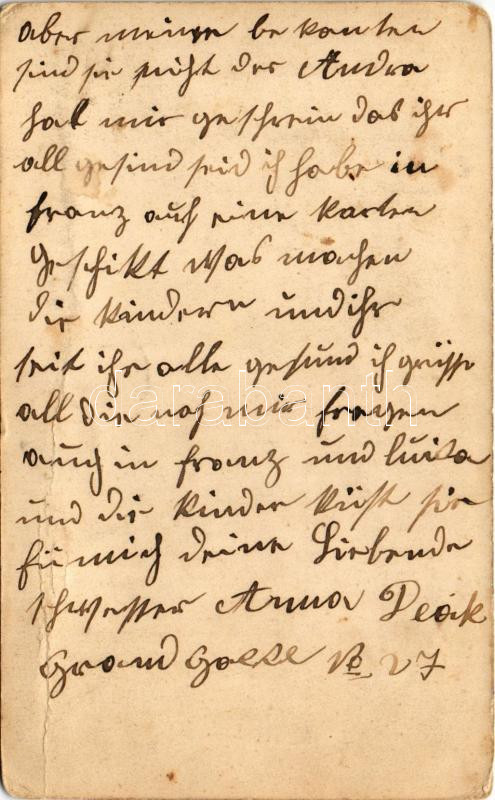 aber meine be kanten
sind sie nicht der Andra
hat mir geschrein das ihr
all gesind seid ich habe in
franz auch eine karten
geschikt was machen
die kindern und ihr
seit ihr alle gesund ich grüsse
all die nach mir fragen
auch in franz und luita
und die kinder küst sie
fü mich deine Liebende
schwester Anna Deák
darabanth